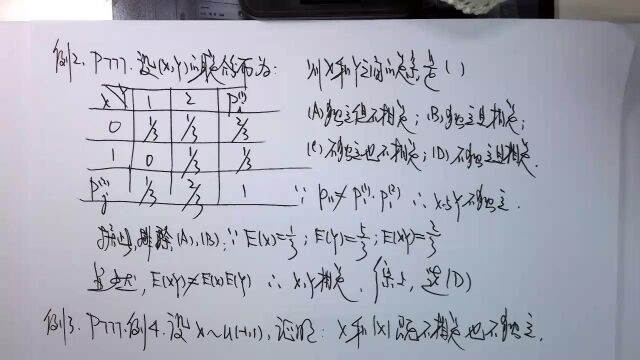 例2. P777. 设(X,Y)的联合分布为: 则X和Y之间的关系是( )
X Y 1 2 Pi⁽¹⁾
0 1/3 1/3 2/3
1 0 1/3 1/3
Pj⁽²⁾ 1/3 2/3 1
(A) 独立但不相关; (B) 独立且相关;
(C) 不独立也不相关; (D) 不独立且相关.
∵ P₁₁≠P₁⁽¹⁾·P₁⁽²⁾ ∴ X与Y不独立.
排除(A),(B). ∵ E(X)=1/3; E(Y)=5/3; E(XY)=2/3
E(XY)≠E(X)E(Y) ∴ X,Y相关. 综上, 选(D)
例3. P777.例4. 设X~U(-1,1), 证明: X和|X|既不相关也不独立.